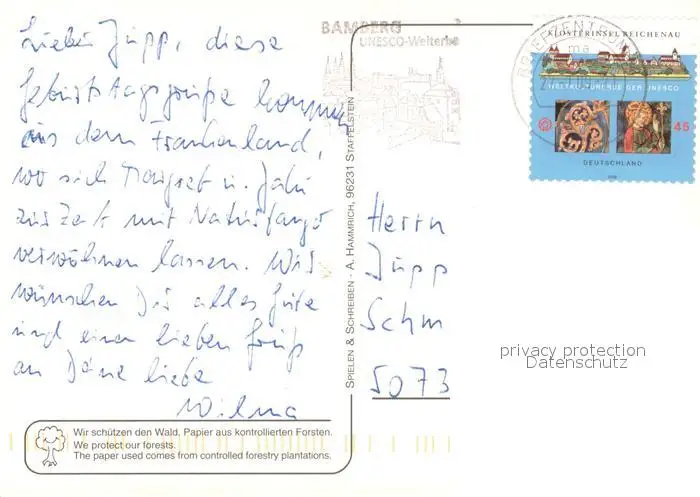 Lieber Jupp, diese
Geburtstagsgrüße kommen
aus dem Frankenland,
wo sich Margret u. John
zur Zeit mit Naturfango
verwöhnen lassen. Wir
wünschen Dir alles Gute
und einen lieben Gruß
an Deine liebe
Wilma
Wir schützen den Wald. Papier aus kontrollierten Forsten.
We protect our forests.
The paper used comes from controlled forestry plantations.
SPIELEN & SCHREIBEN - A. HAMMRICH, 96231 STAFFELSTEIN
BAMBERG
UNESCO-Welterbe
BRIEFZENTRUM
ma
KLOSTERINSEL REICHENAU
WELTKULTURERBE DER UNESCO
45
DEUTSCHLAND
Herrn
Jupp
Schm
5073
privacy protection
Datenschutz